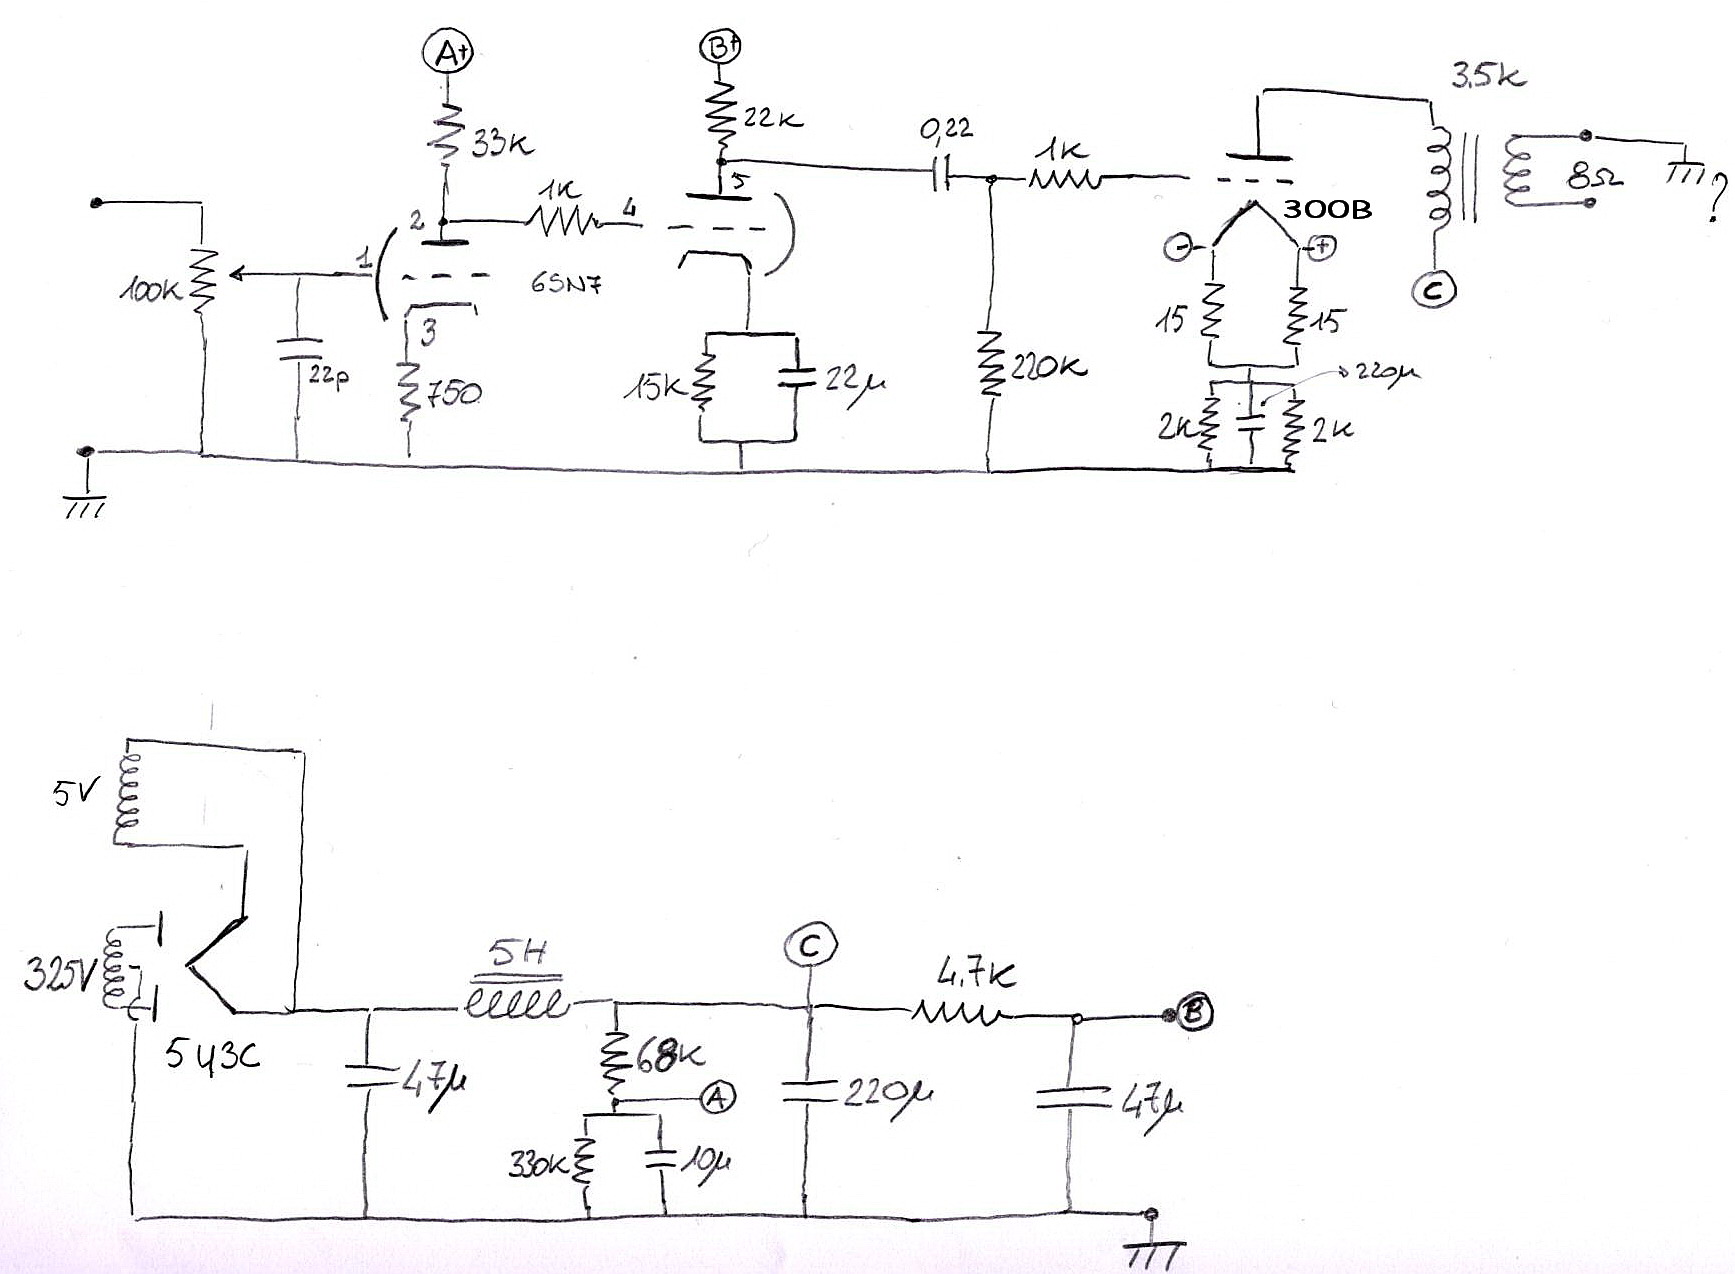 A+
33K
2
1
3
100K
22p
750
6SN7
1K
4
B+
22K
5
15K
22µ
0,22
1K
220K
300B
-
+
15
15
220µ
2K
2K
3,5K
8Ω
?
C
5V
325V
5Ц3С
47µ
5H
68K
A
330K
10µ
C
220µ
4,7K
B
47µ